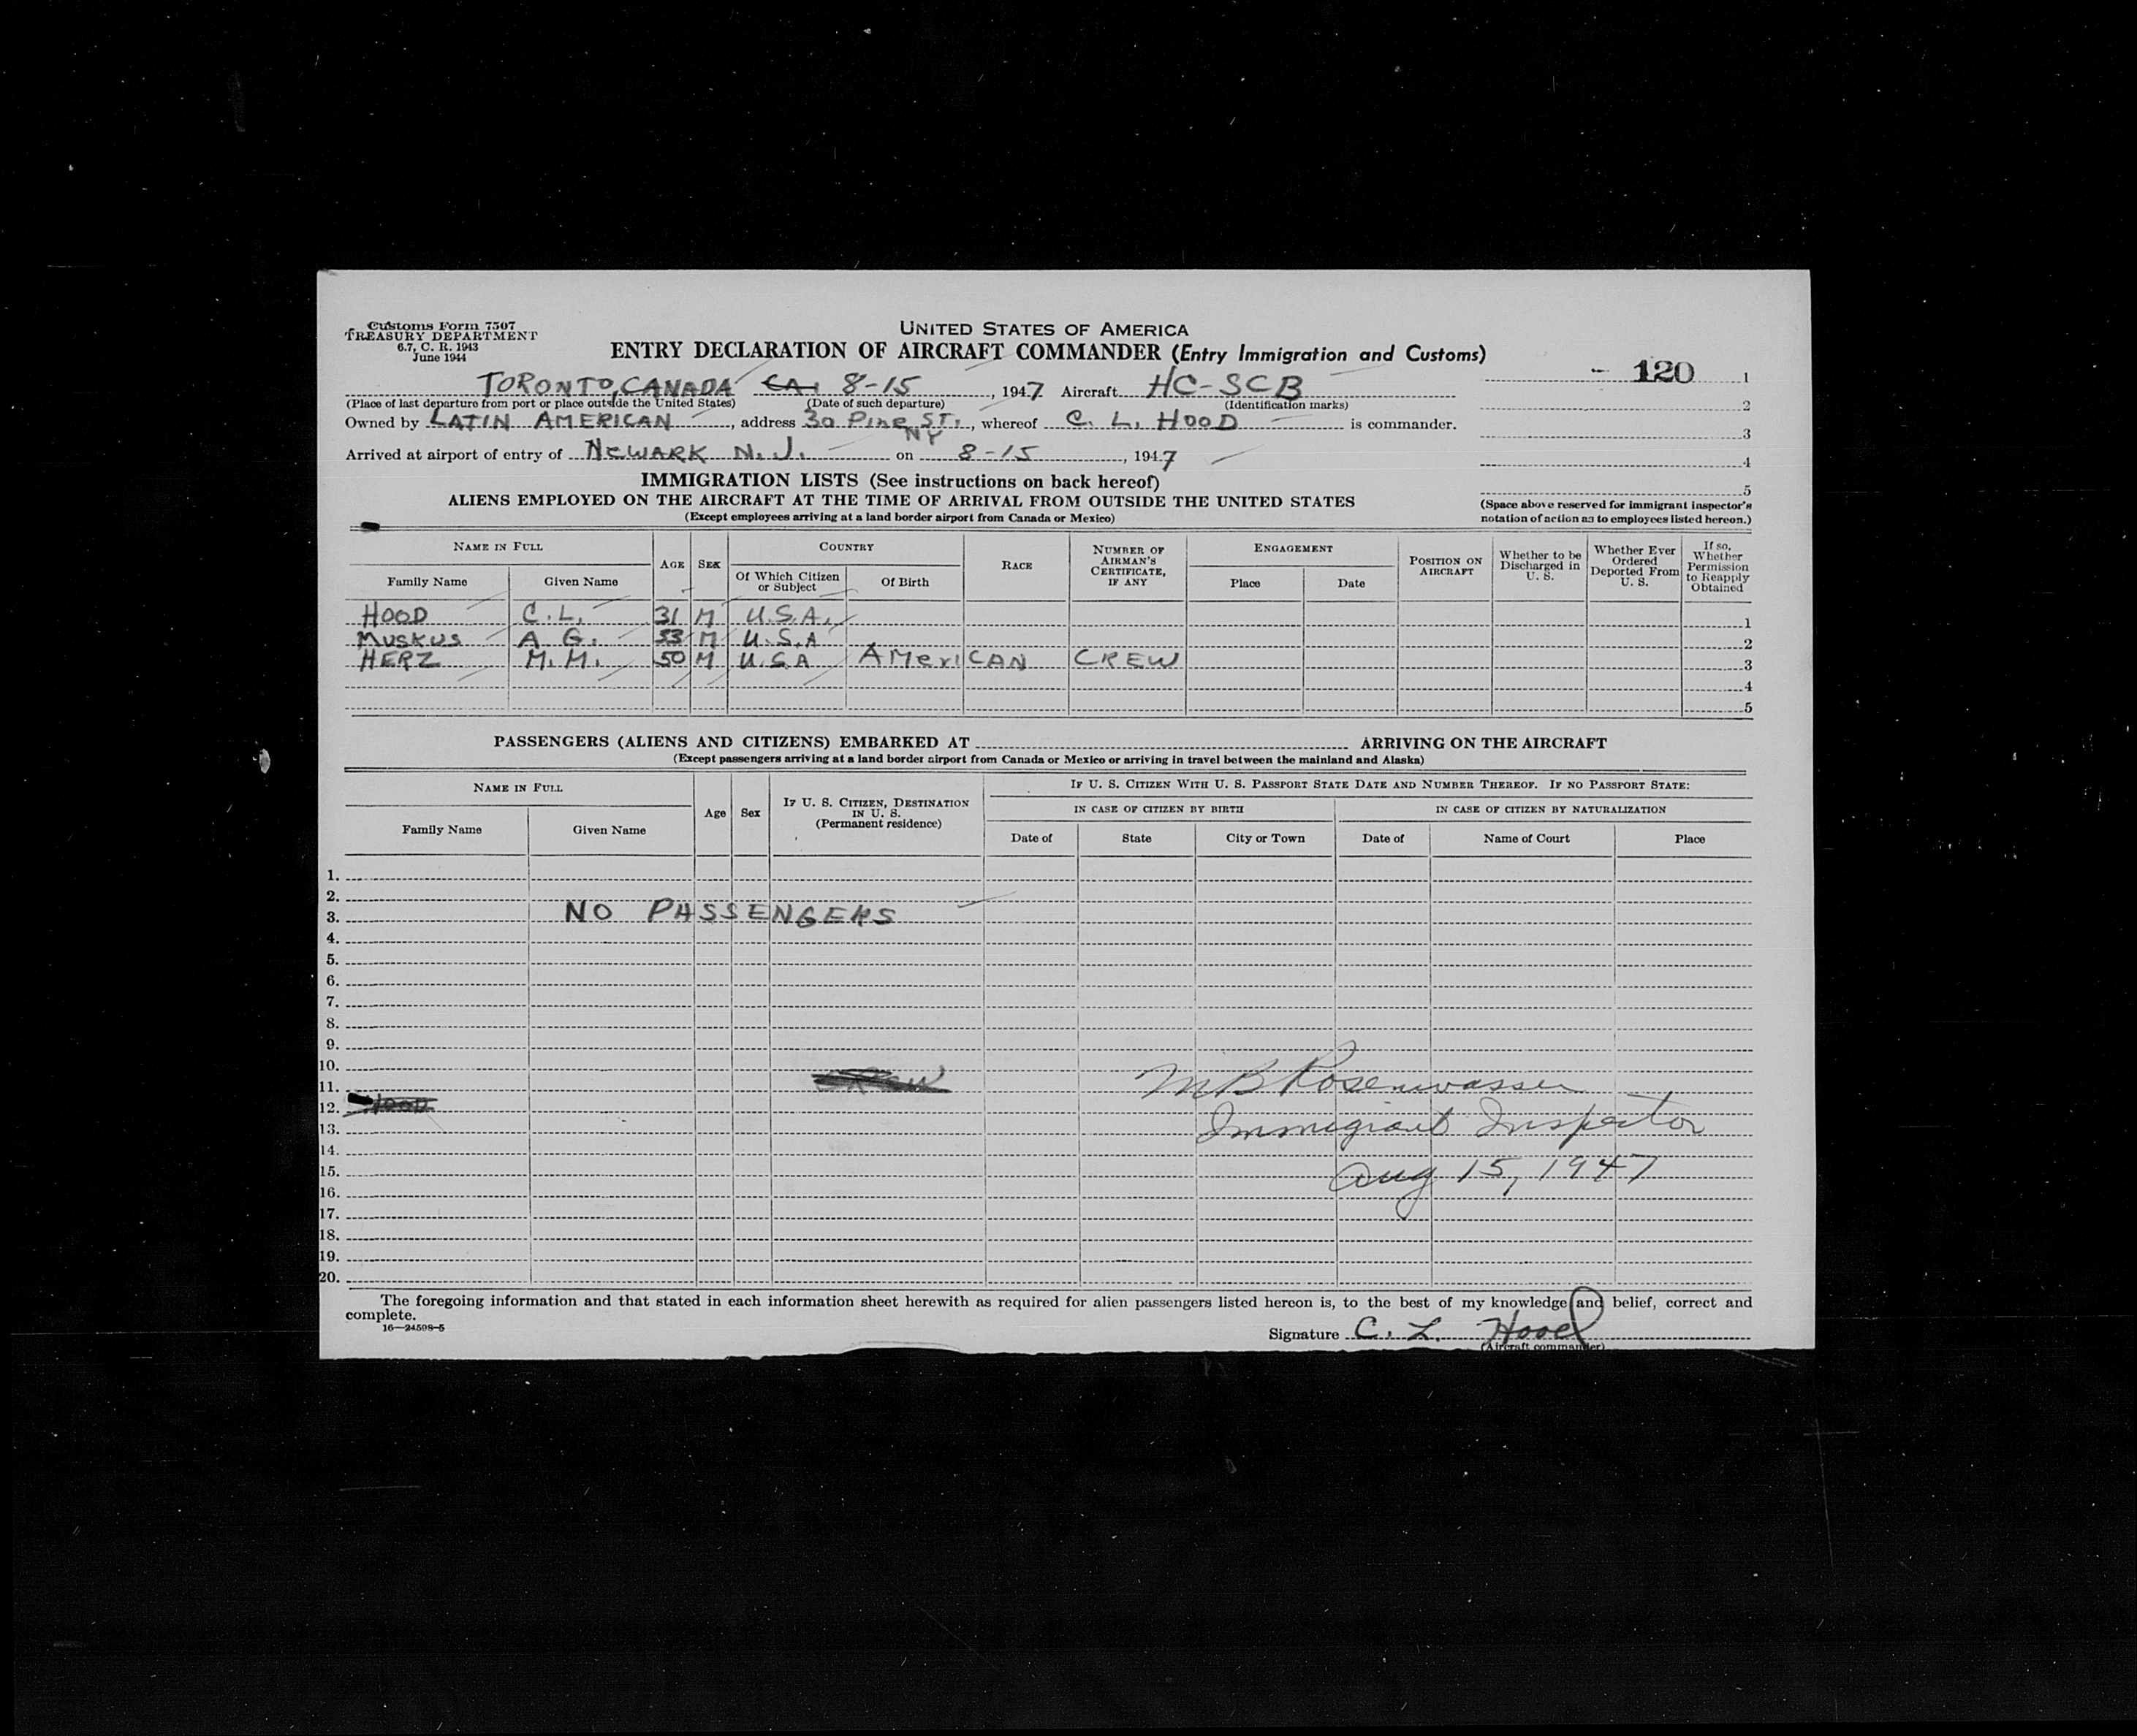 Customs Form 7507
TREASURY DEPARTMENT
6.7, C. R. 1943
June 1944
UNITED STATES OF AMERICA
ENTRY DECLARATION OF AIRCRAFT COMMANDER (Entry Immigration and Customs)
- 120 1
TORONTO, CANADA CA. 8-15, 1947 Aircraft HC-SCB
(Place of last departure from port or place outside the United States) (Date of such departure) (Identification marks) 2
Owned by LATIN AMERICAN, address 30 Pine ST. NY, whereof C. L. HOOD is commander.
3
Arrived at airport of entry of NEWARK N. J. on 8-15, 1947
4
IMMIGRATION LISTS (See instructions on back hereof)
5
ALIENS EMPLOYED ON THE AIRCRAFT AT THE TIME OF ARRIVAL FROM OUTSIDE THE UNITED STATES
(Except employees arriving at a land border airport from Canada or Mexico)
(Space above reserved for immigrant inspector's
notation of action as to employees listed hereon.)
NAME IN FULL AGE SEX COUNTRY RACE NUMBER OF AIRMAN'S CERTIFICATE, IF ANY ENGAGEMENT POSITION ON AIRCRAFT Whether to be Discharged in U. S. Whether Ever Ordered Deported From U. S. If so, Whether Permission to Reapply Obtained
Family Name Given Name Of Which Citizen or Subject Of Birth Place Date
HOOD C. L. 31 M U.S.A. 1
MUSKUS A. G. 33 M U.S.A 2
HERZ M. M. 50 M U.S.A AMERICAN CREW 3
4
5
PASSENGERS (ALIENS AND CITIZENS) EMBARKED AT ARRIVING ON THE AIRCRAFT
(Except passengers arriving at a land border airport from Canada or Mexico or arriving in travel between the mainland and Alaska)
NAME IN FULL Age Sex IF U. S. CITIZEN, DESTINATION IN U. S. (Permanent residence) IF U. S. CITIZEN WITH U. S. PASSPORT STATE DATE AND NUMBER THEREOF. IF NO PASSPORT STATE:
IN CASE OF CITIZEN BY BIRTH IN CASE OF CITIZEN BY NATURALIZATION
Family Name Given Name Date of State City or Town Date of Name of Court Place
1.
2.
3. NO PASSENGERS
4.
5.
6.
7.
8.
9.
10.
11. M B Rosenwasser
12. Hood
13. Immigrant Inspector
14.
15. Aug 15, 1947
16.
17.
18.
19.
20.
The foregoing information and that stated in each information sheet herewith as required for alien passengers listed hereon is, to the best of my knowledge and belief, correct and
complete.
16—24598-5
Signature C. L. Hood
(Aircraft commander)